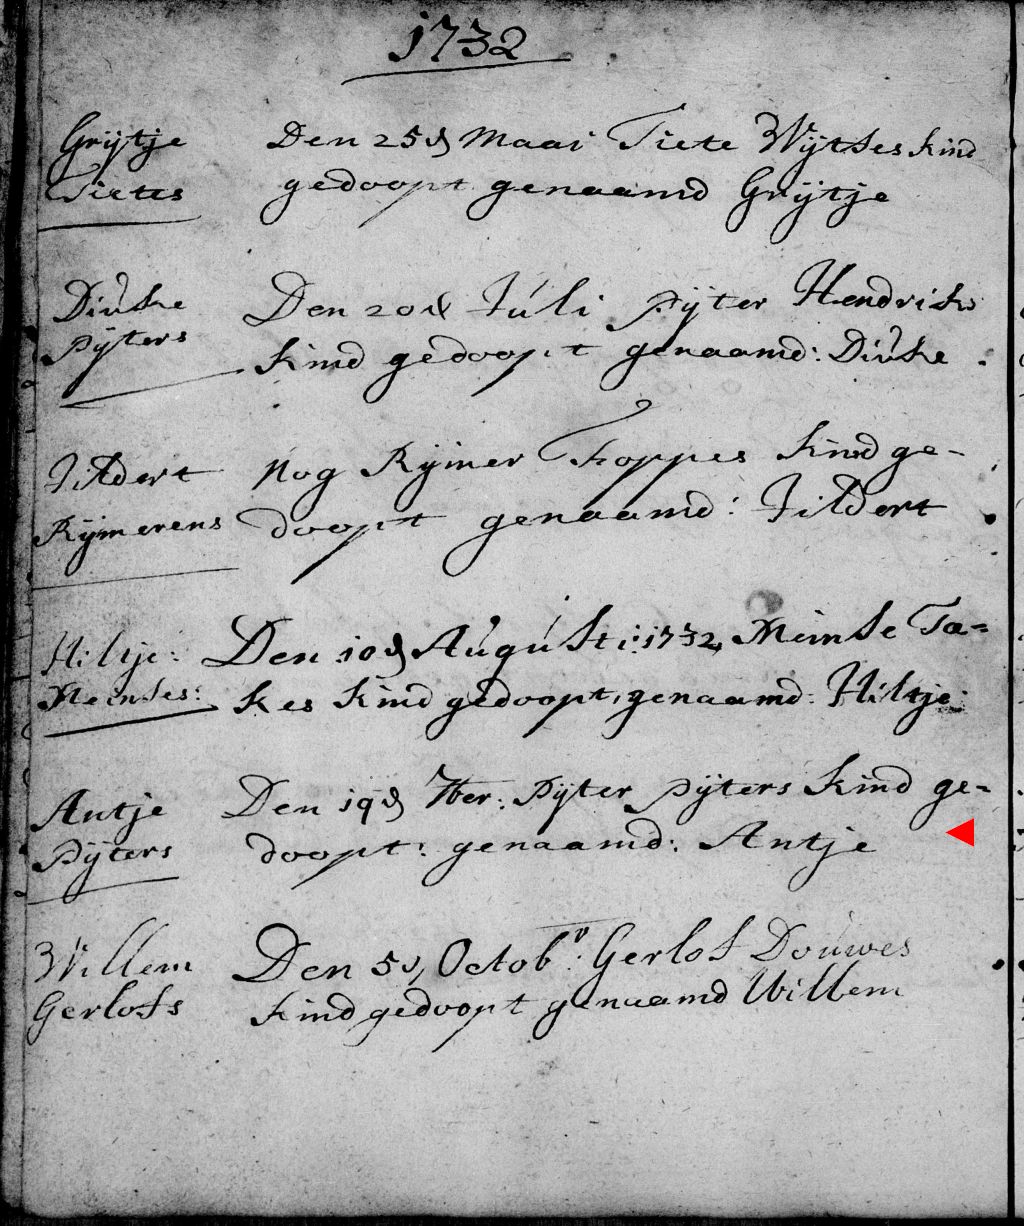 1732
Grijtje
Tietes
Den 25d Maai Tiete Wijtses kind
gedoopt genaamd Grijtje
Dirkie
Pijters
Den 20d Juli Pijter Hendriks
kind gedoopt genaamd: Dirkie.
Jildert
Rijmerens
Nog Rijmer Foppes kind ge-
doopt genaamd: Jildert
Hiltje:
Meinses:
Den 10d Augusti: 1732, Meinse Ta=
kes kind gedoopt, genaamd: Hiltje:
Antje
Pijters
Den 19d 7ber: Pijter Pijters kind ge=
doopt: genaamd: Antje
Willem
Gerlofs
Den 5d, Octobr: Gerlof Douwes
kind gedoopt genaamd Willem